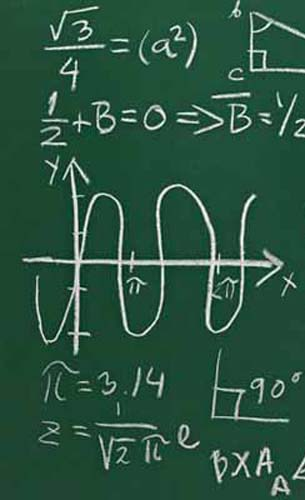 √3/4 = (a²)
b
c
1/2 + B = 0 => B̅ = 1/2
Y
π
π
X
π = 3.14
90°
z = 1/√2π e
BXA
A